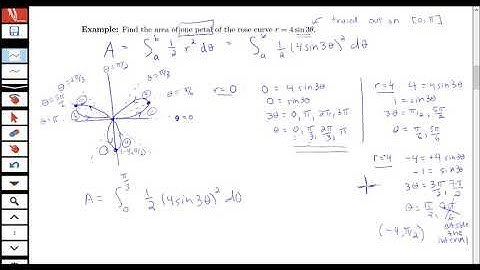 traced out on [0,π]
Example: Find the area of one petal of the rose curve r = 4 sin 3θ.
A = ∫ₐᵇ ½ r² dθ = ∫ₐᵇ ½ (4sin3θ)² dθ
θ=2π/3
θ=π/2
θ=π/3
θ=π
θ=π/6
θ=0
(-4,π/2)
r=0
0 = 4sin3θ
0 = sin3θ
3θ = 0, π, 2π, 3π
θ = 0, π/3, 2π/3, π
r=4
4 = 4sin3θ
1 = sin3θ
3θ = π/2, 5π/2
θ = π/6, 5π/6
r=4
-4 = +4sin3θ
-1 = sin3θ
3θ = 3π/2, 7π/2
θ = π/2,
(-4, π/2)
outside
the
interval
A = ∫₀^(π/3) ½ (4sin3θ)² dθ